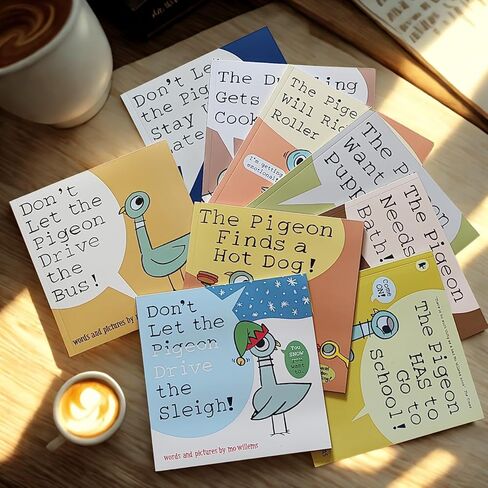 Don't Let
the Pige
Stay U
ate
The Du ling
Gets
Cook
The Pige
Will Ri
Roller
I'm getting
emotional!
The
Pigeon
Want
Pupp
The
Pigeon
Needs
Bath!
Don't
Let the
Pigeon
Drive
the
Bus!
words and pictures by m
The Pigeon
Finds a
Hot Dog!
Don't
Let the
Pigeon
Pigeon
Drive
the
Sleigh!
You
KNOW
want
to.
words and pictures by mo willems
COME
ON!
The
Pigeon
HAS to
Go to
School!